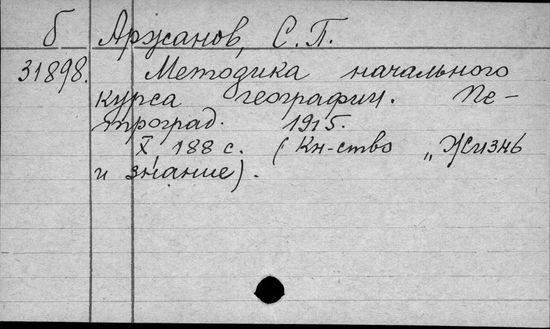 б Аржанов, С. П.
31898. Методика начального
курса географии. Пе-
троград. 1915.
X, 188 с. (Кн-ство „Жизнь
и знание).